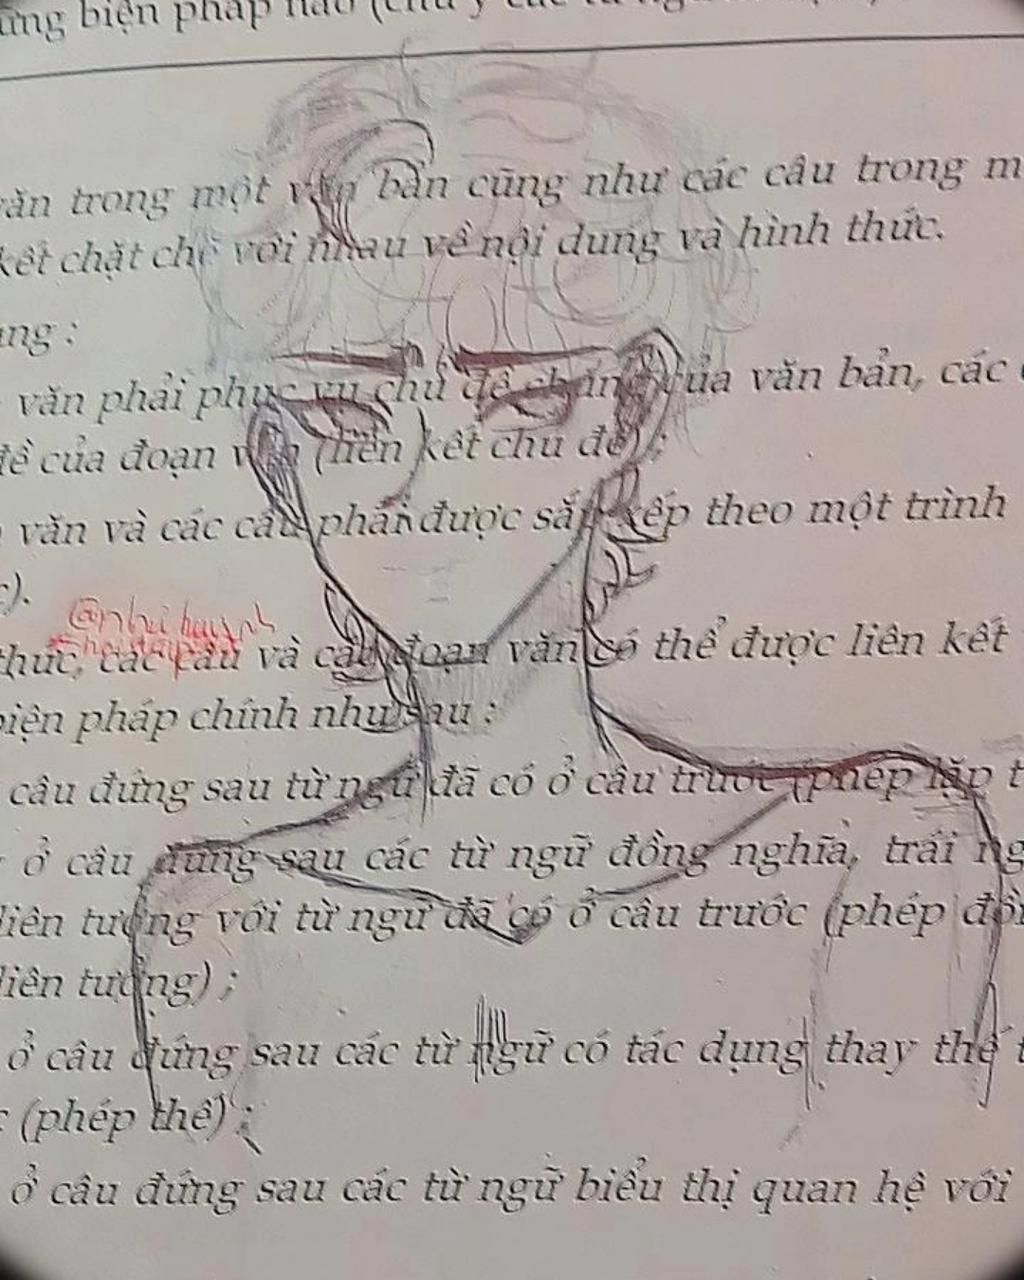 ững biện pháp nào (chú ý các từ ngữ
văn trong một văn bản cũng như các câu trong m
kết chặt chẽ với nhau về nội dung và hình thức.
ung :
văn phải phục vụ chủ đề chung của văn bản, các
đề của đoạn văn (liên kết chủ đề) ;
văn và các câu phải được sắp xếp theo một trình
c).
@nhi huỳnh
thức, các câu và các đoạn văn có thể được liên kết
biện pháp chính như sau :
câu đứng sau từ ngữ đã có ở câu trước (phép lặp t
ở câu đứng sau các từ ngữ đồng nghĩa, trái ng
liên tưởng với từ ngữ đã có ở câu trước (phép đồn
liên tưởng) ;
ở câu đứng sau các từ ngữ có tác dụng thay thế t
c (phép thế) ;
ở câu đứng sau các từ ngữ biểu thị quan hệ với